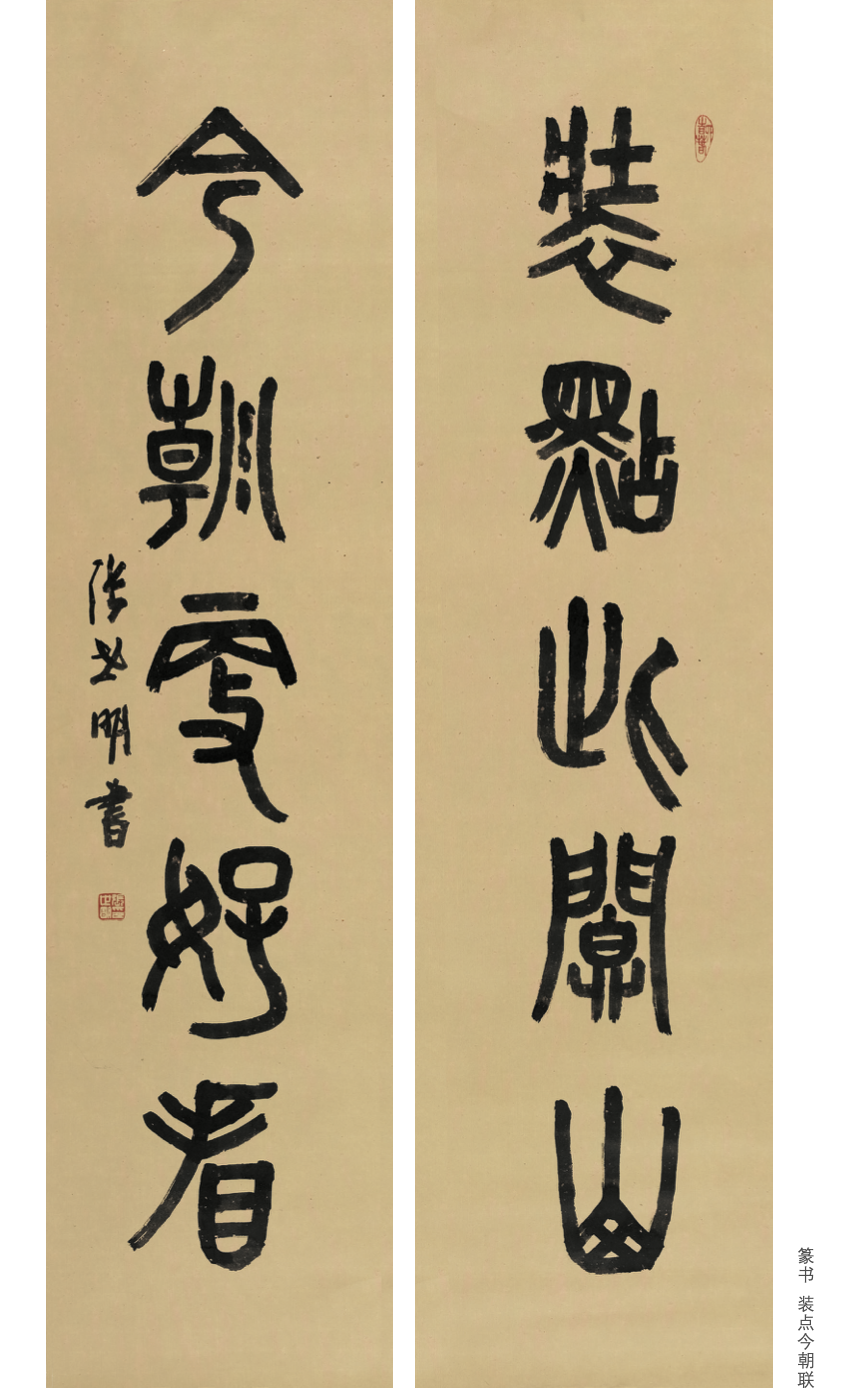 裝點此關山
今朝更好看
張世明書
篆书 装点今朝联